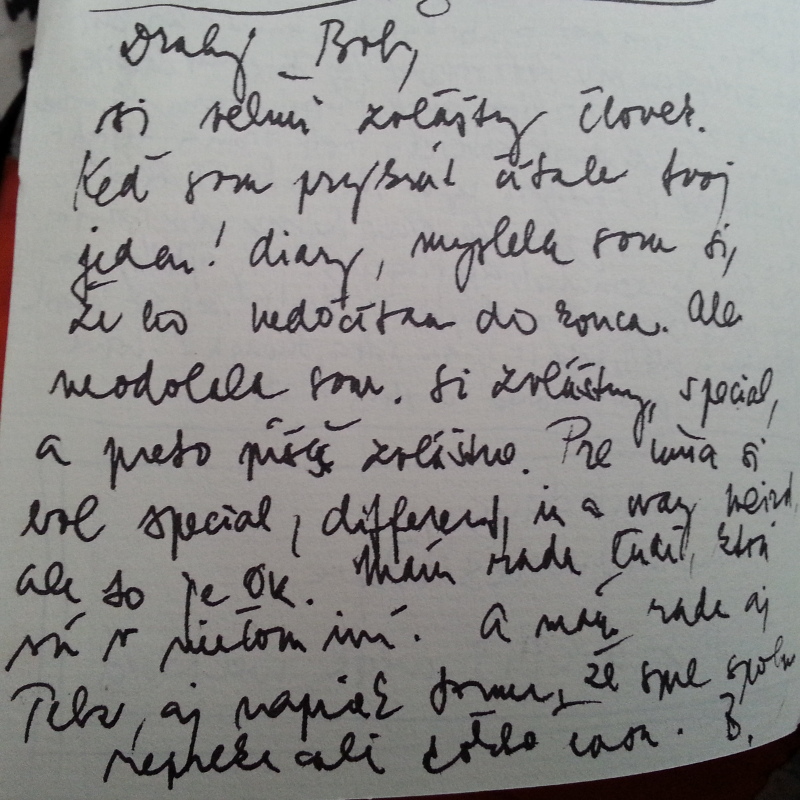 Drahý Boby,
si veľmi zvláštny človek.
Keď som prvýkrát čítala tvoj
jeden! diary, myslela som si,
že ho nedočítam do konca. Ale
neodolala som. Si zvláštny, special,
a preto píšeš zvláštne. Pre mňa si
bol special, different, in a way weird,
ale to je OK. Mám rada ľudí, ktorí
sú v niečom iní. A mám rada aj
Teba, aj napriek tomu, že sme spolu
neprežili veľa času. B.